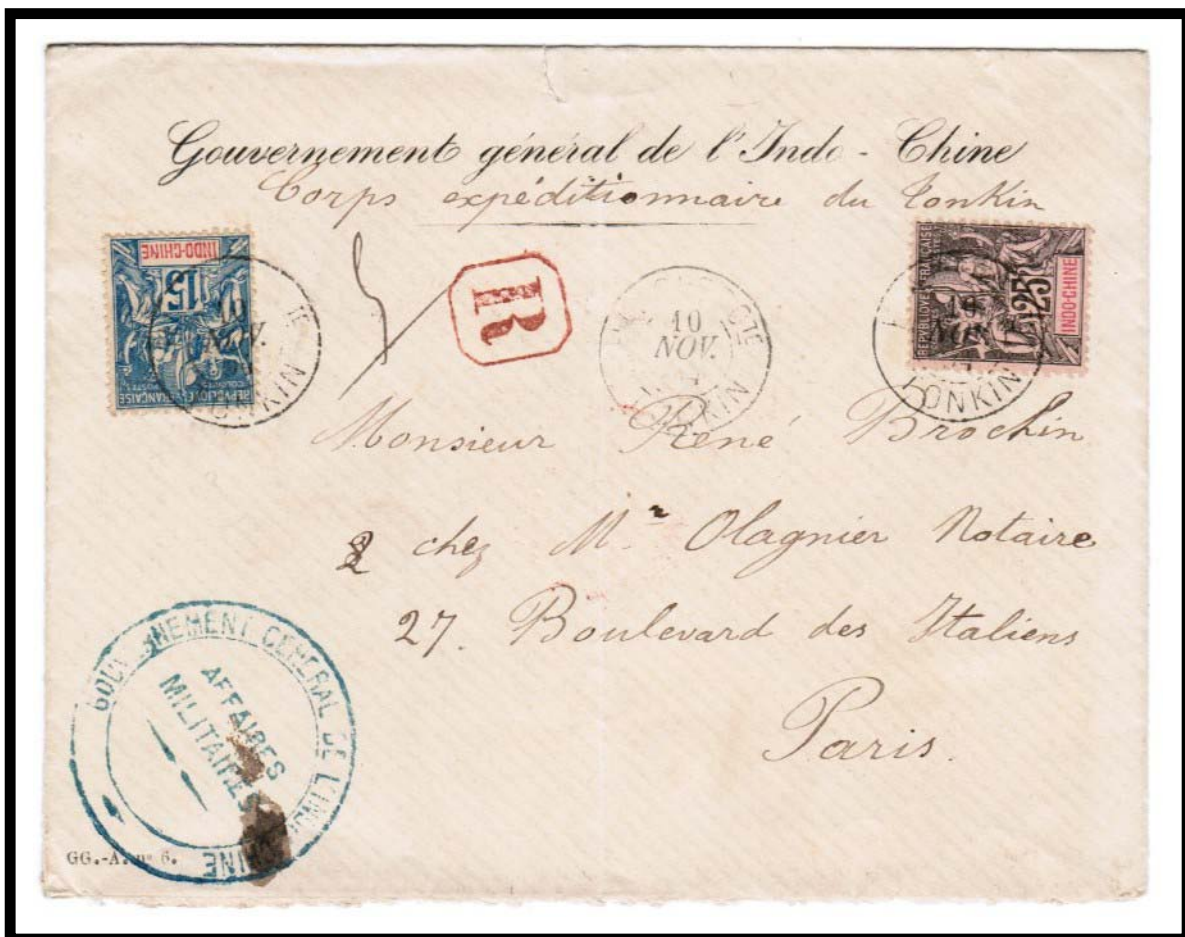 Gouvernement général de l'Indo-Chine
Corps expéditionnaire du Tonkin
INDO-CHINE
15
REPUBLIQUE FRANÇAISE
COLONIES
POSTES
TONKIN
R
10
NOV.
TONKIN
REPUBLIQUE FRANÇAISE
25
INDO-CHINE
TONKIN
Monsieur René Brochin
chez Mr Olagnier Notaire
27. Boulevard des Italiens
Paris.
GOUVERNEMENT GENERAL DE L'INDO-CHINE
AFFAIRES
MILITAIRES
GG.-A. nº 6.